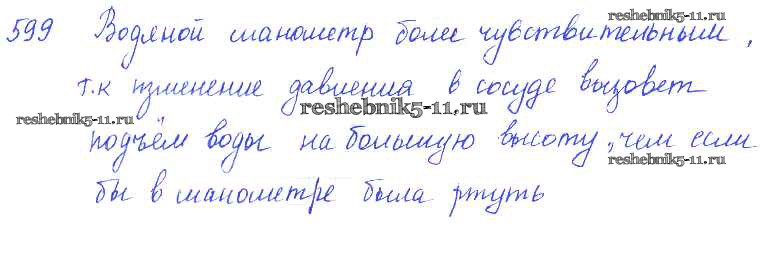 reshebnik5-11.ru
599 Водяной манометр более чувствительным,
т.к изменение давления в сосуде вызовет
reshebnik5-11.ru
reshebnik5-11.ru
подъём воды на большую высоту, чем если
reshebnik5-11.ru
бы в манометре была ртуть